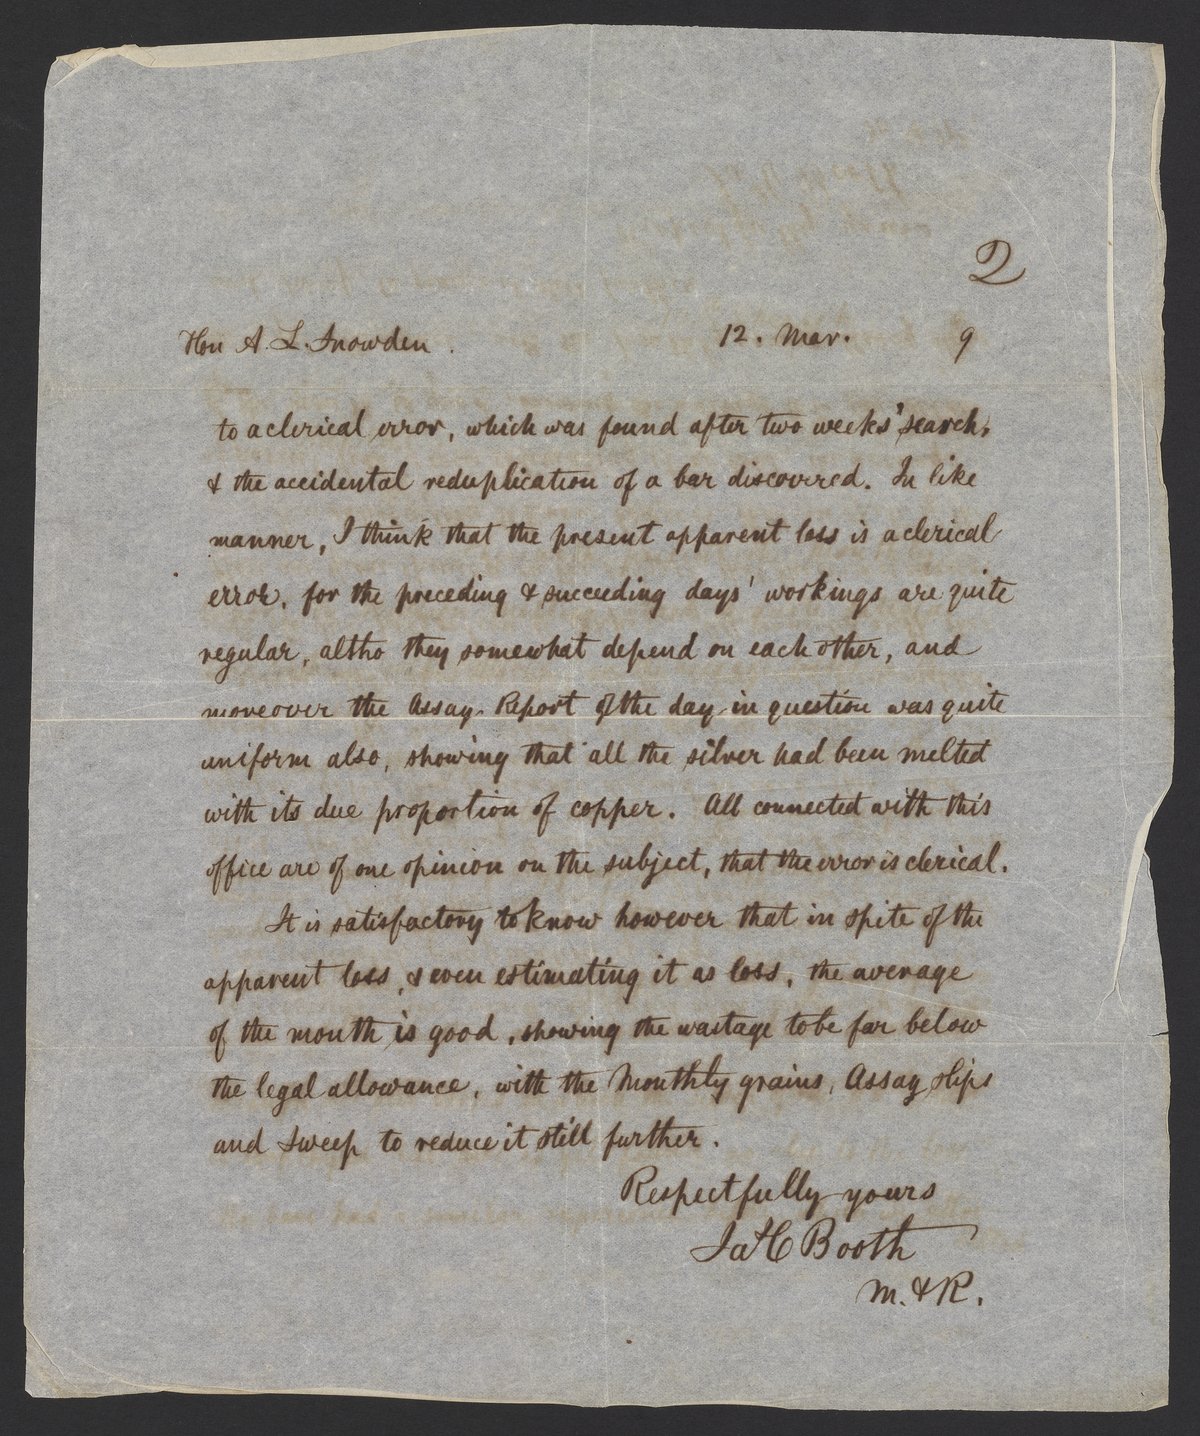 2
Hon A. L. Snowden. 12. Mar. 9
to a clerical error, which was found after two weeks' search,
& the accidental reduplication of a bar discovered. In like
manner, I think that the present apparent loss is a clerical
error, for the preceding & succeeding days' workings are quite
regular, altho they somewhat depend on each other, and
moreover the Assay-Report of the day in question was quite
uniform also, showing that all the silver had been melted
with its due proportion of copper. All connected with this
office are of one opinion on the subject, that the error is clerical.
It is satisfactory to know however that in spite of the
apparent loss, & even estimating it as loss, the average
of the month is good, showing the wastage to be far below
the legal allowance, with the Monthly grains, Assay slips
and Sweep to reduce it still further.
Respectfully yours
Ja^s C Booth
M. & R.